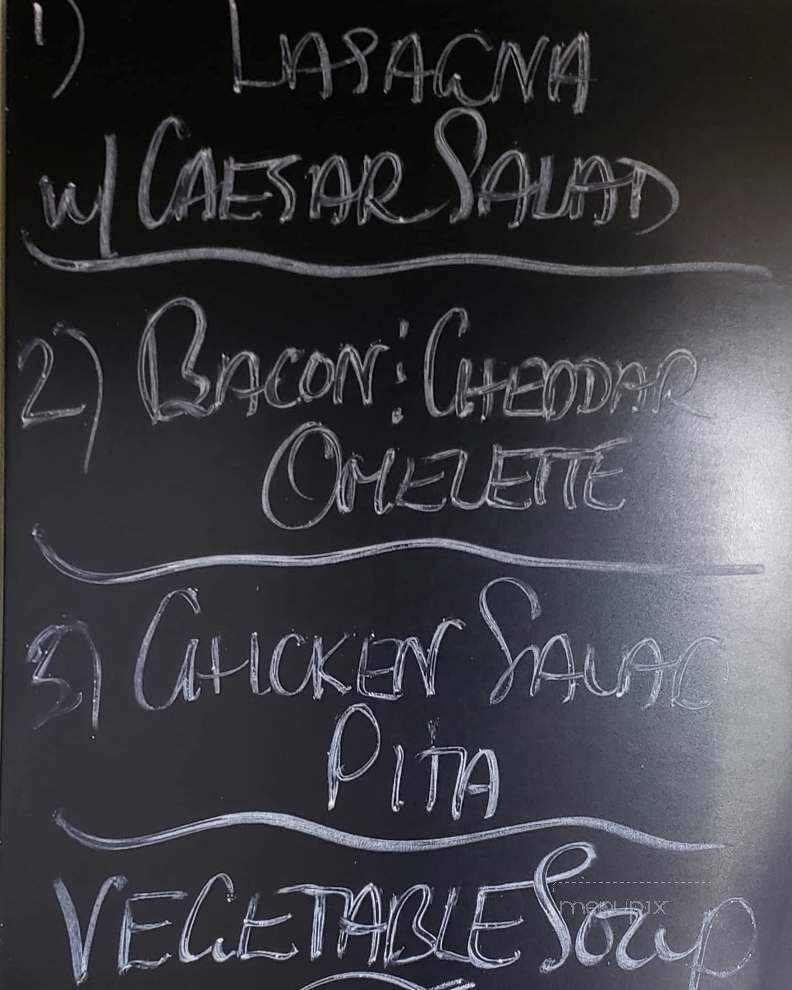 1) LASAGNA
w/ CAESAR SALAD
2) BACON : CHEDDAR
OMELETTE
3) CHICKEN SALAD
PITA
VEGETABLE SOUP
menupix